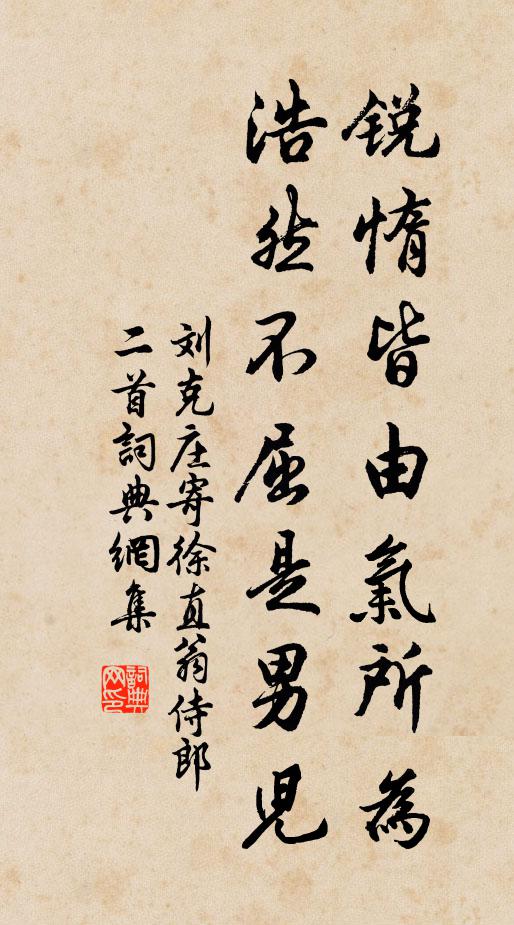 锐惰皆由氣所為
浩然不屈是男兒
刘克庄寄徐直翁侍郎
二首詞典網集
詞典网印